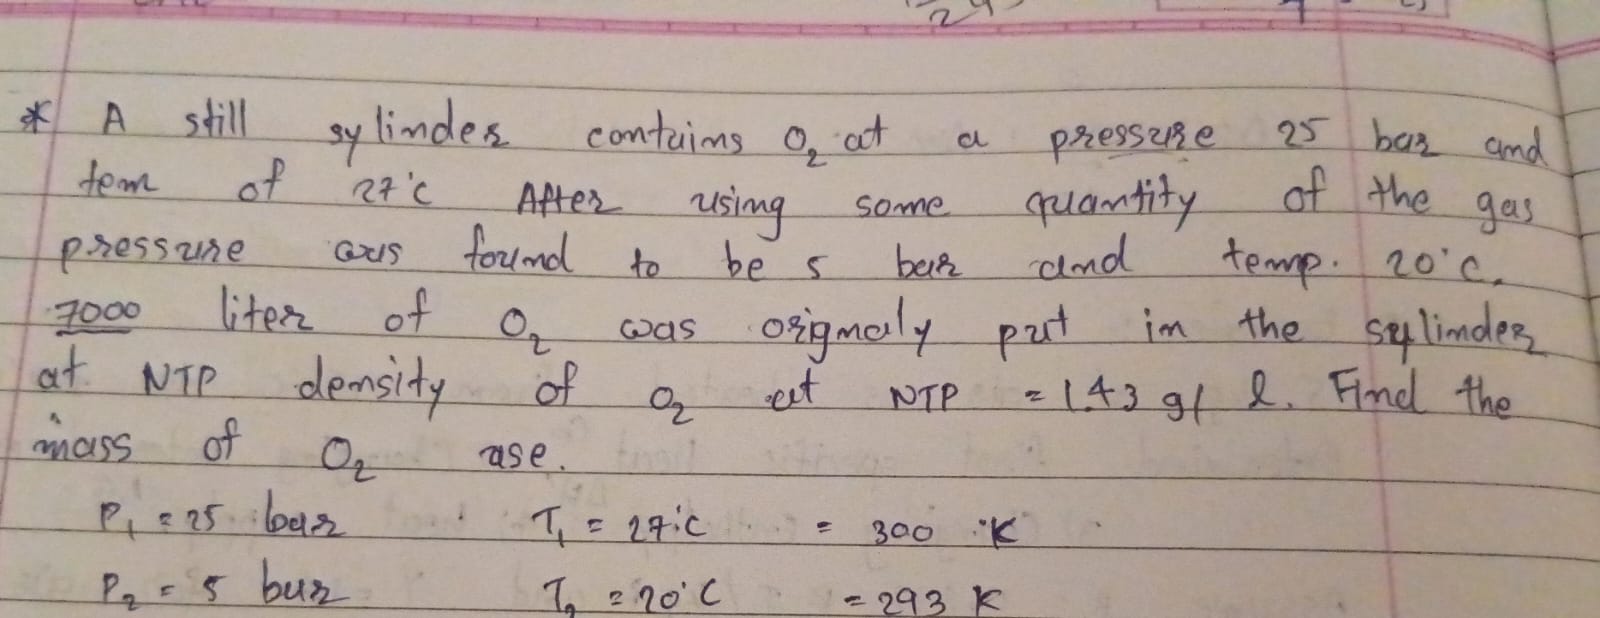 * A still sylinder contains O₂ at a pressure 25 bar and
tem of 27°c After using some quantity of the gas
pressure was found to be 5 bar and temp. 20°c.
7000 liter of O₂ was orignaly put in the sylinder
at NTP density of O₂ at NTP = 1.43 g/ l. Find the
mass of O₂ use.
P₁ = 25 bar T₁ = 27°C = 300 °K
P₂ = 5 bar T₂ = 20°C = 293 K